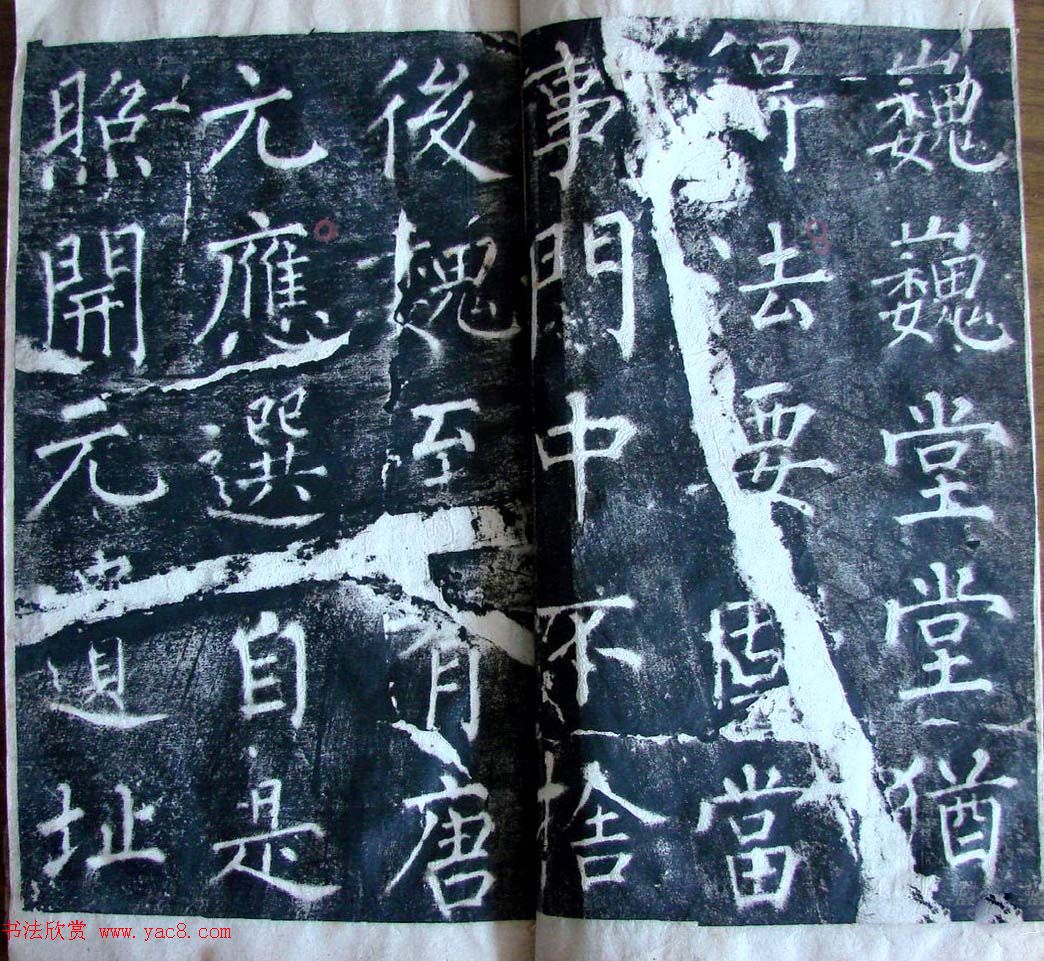 巍巍堂堂猶
得法要當
事門中不捨
後魏至有唐
元應選自是
照開元址
书法欣赏 www.yac8.com